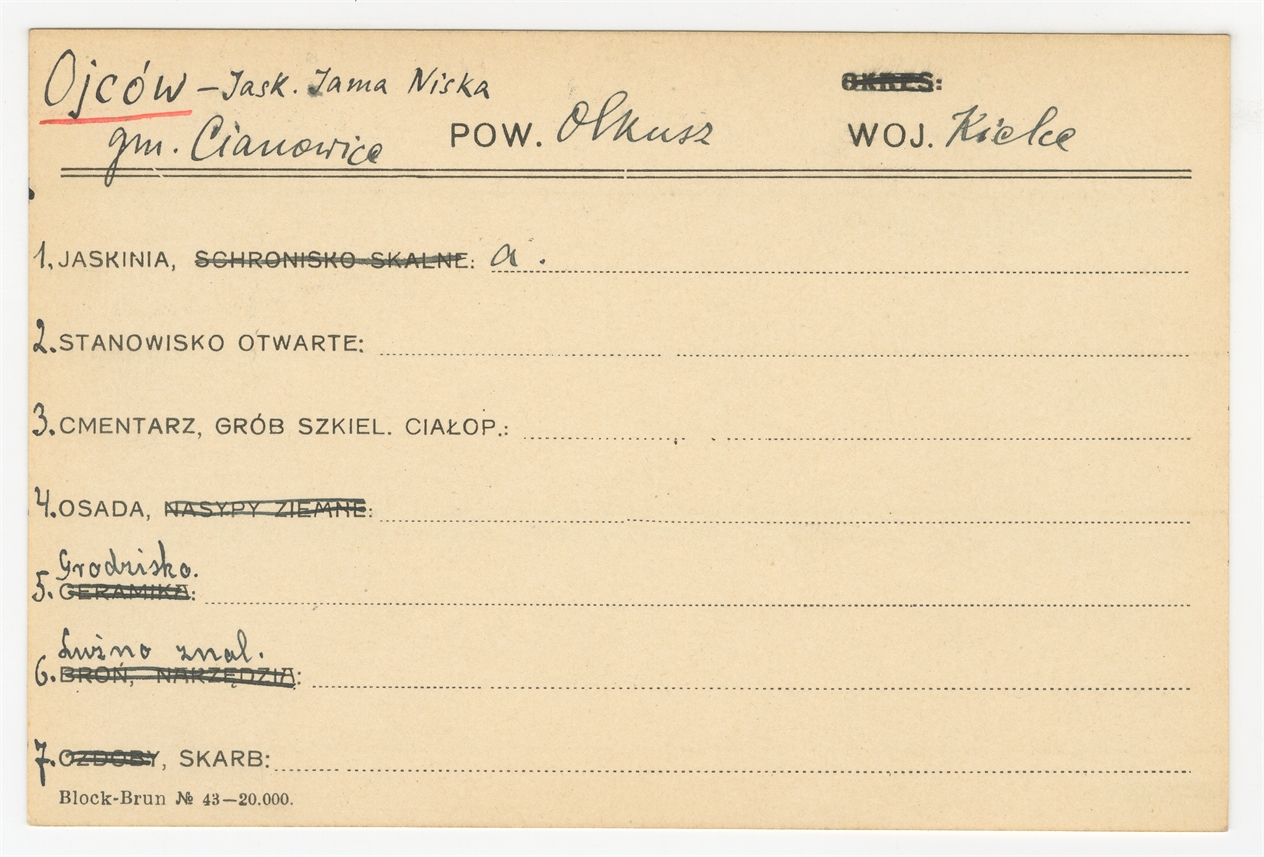 Ojców – Jask. Jama Niska
OKRES:
gm. Cianowice POW. Olkusz WOJ. Kielce
1. JASKINIA, SCHRONISKO SKALNE: a.
2. STANOWISKO OTWARTE:
3. CMENTARZ, GRÓB SZKIEL. CIAŁOP.:
4. OSADA, NASYPY ZIEMNE:
Grodzisko.
5. CERAMIKA:
Luźno znal.
6. BROŃ, NARZĘDZIA:
7. OZDOBY, SKARB:
Block-Brun № 43—20.000.